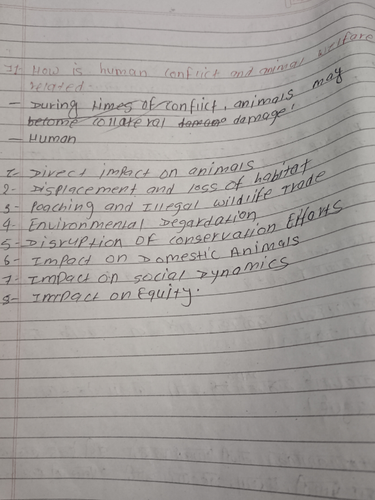 How is human conflict and animal welfare
related
- During times of conflict, animals may
become collateral damage!
- Human
1- Direct impact on animals
2- Displacement and loss of habitat
3- Poaching and Illegal wildlife Trade
4- Environmental Degardation
5- Disruption of conservation Efforts
6- Impact on Domestic Animals
7- Impact on social Dynamics
8- Impact on Equity.